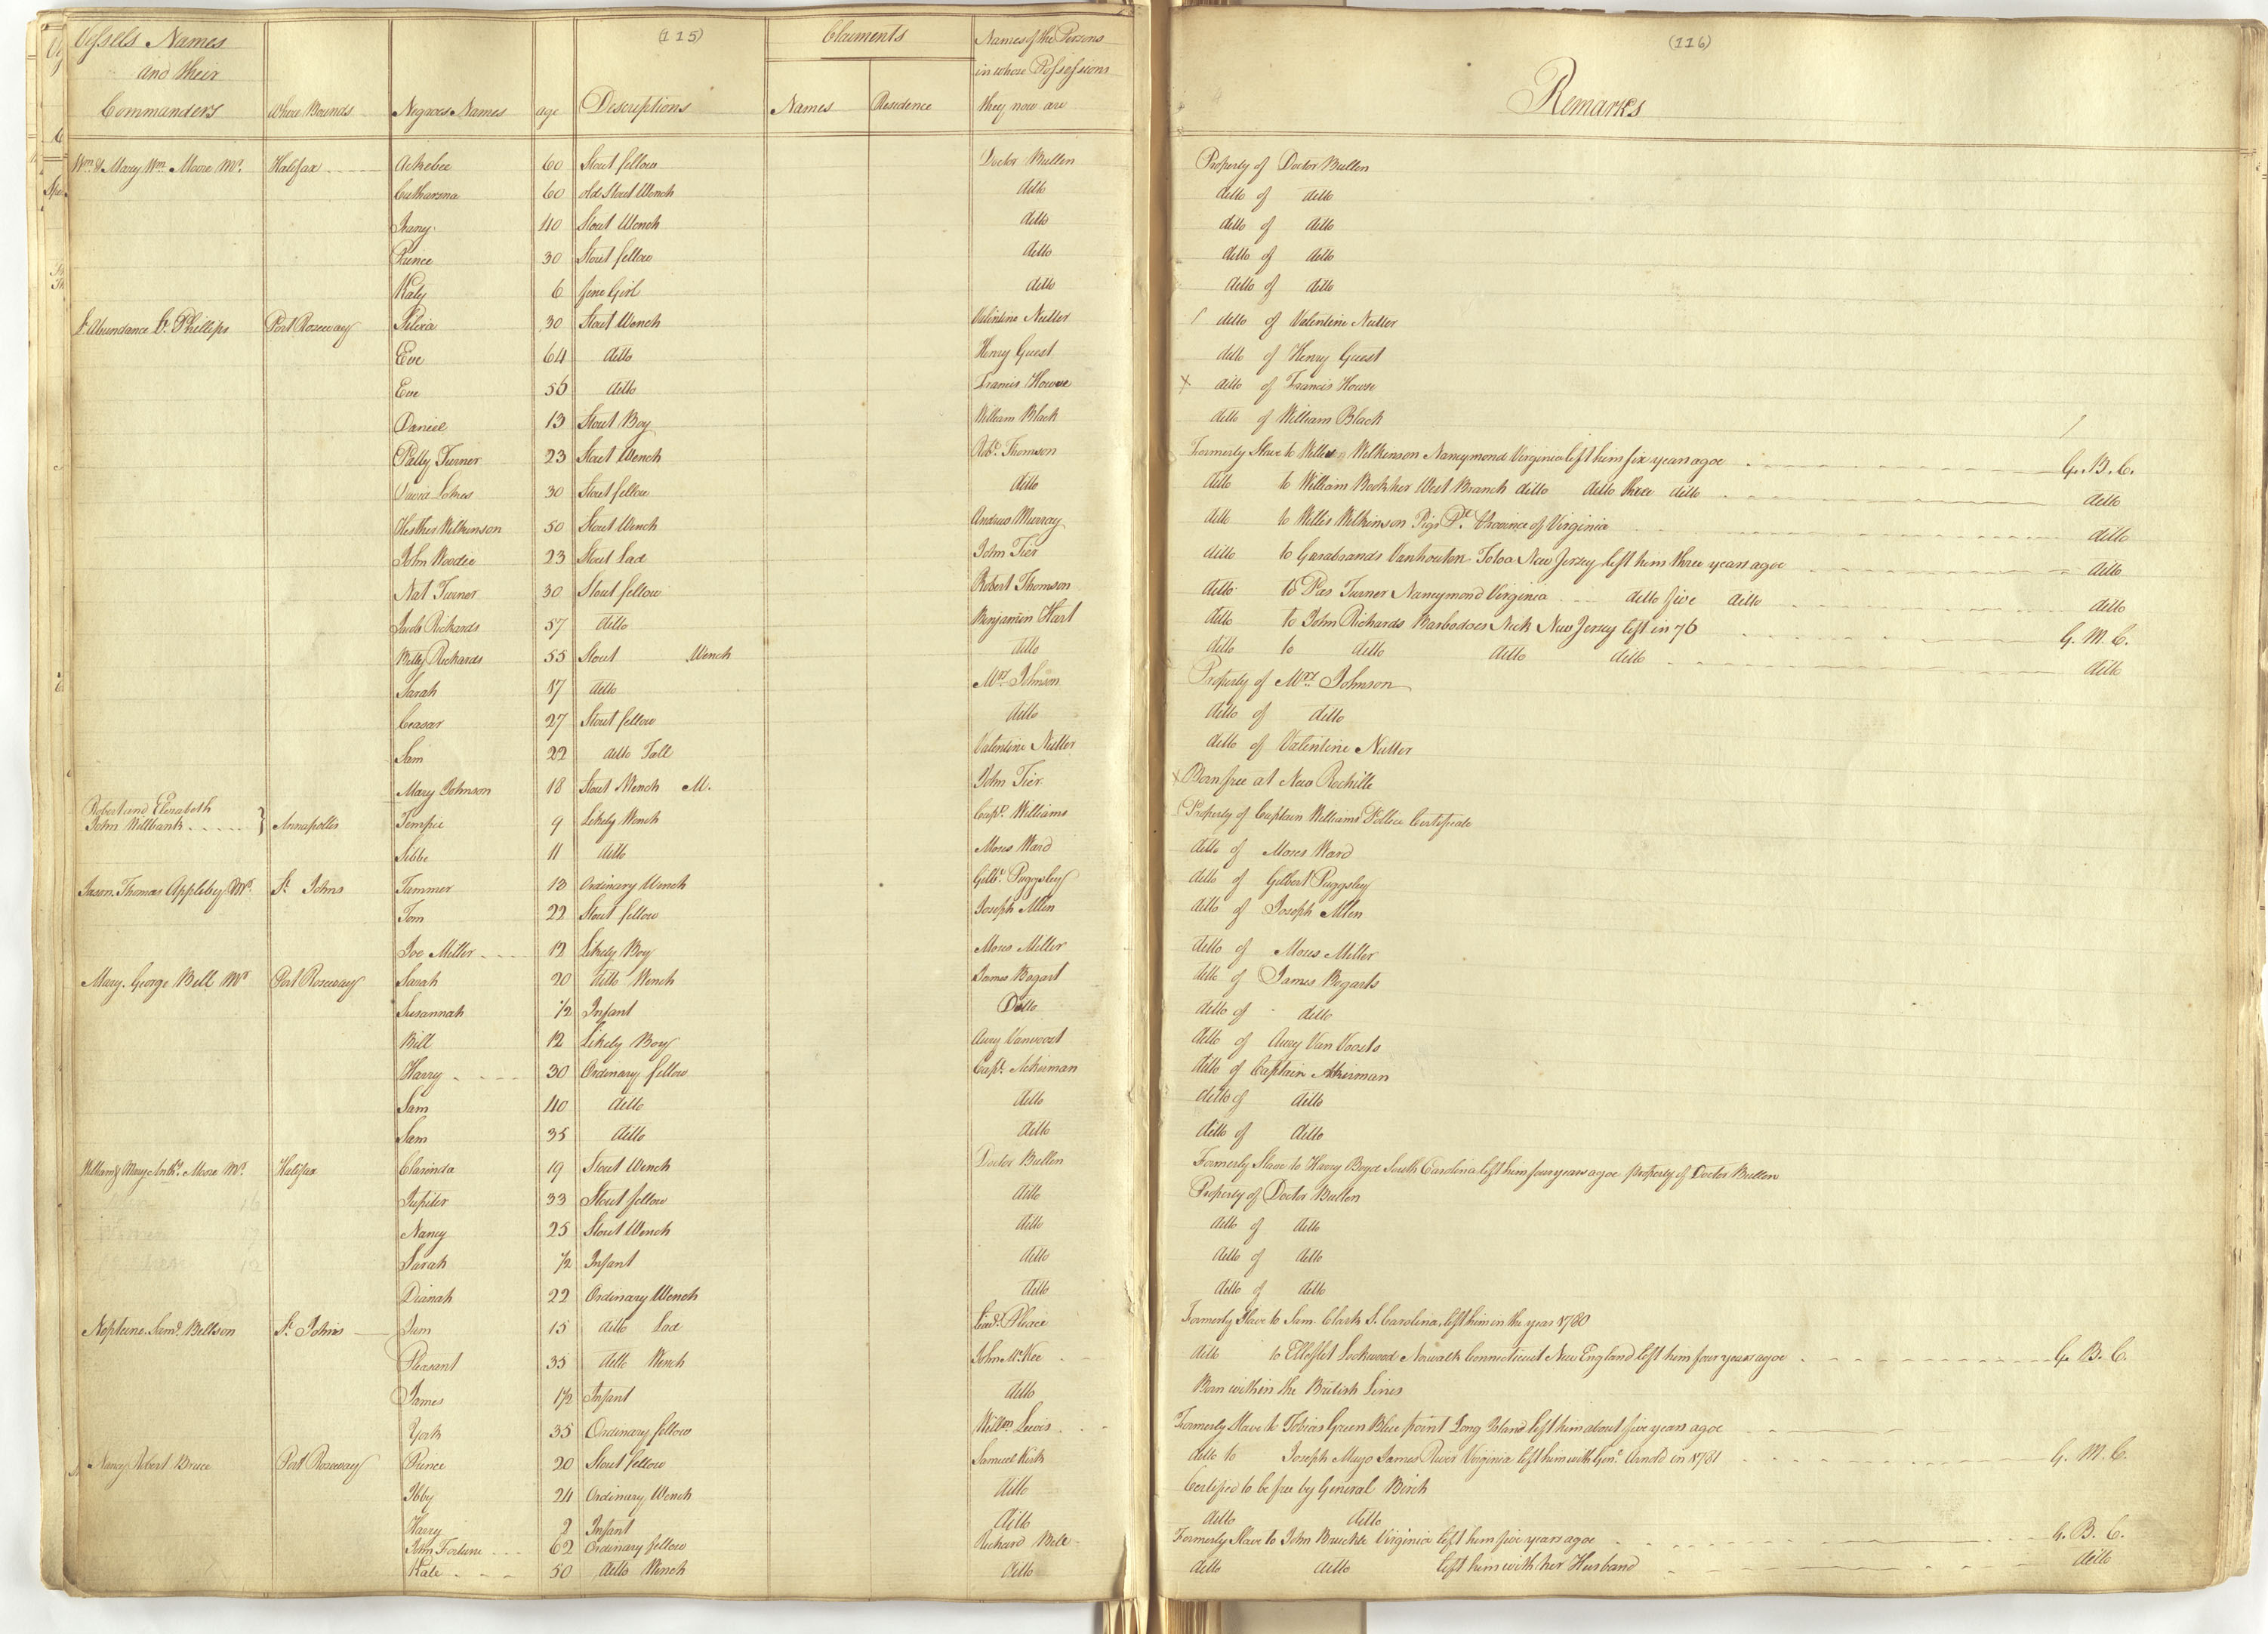 (115)
Vessels Names and their Commanders	Where Bound	Negroes Names	age	Descriptions	Claiments Names	Residence	Names of the Persons in whose Possessions they now are
(116)
Remarks
Wm & Mary Wm Moore Mr.	Halifax	60	Stout fellow	Doctor Bullen	Property of Doctor Bullen
Catharina	60	old Stout Wench	ditto	ditto of ditto
40	Stout Wench	ditto	ditto of ditto
Prince	30	Stout fellow	ditto	ditto of ditto
Katy	6	fine Girl	ditto	ditto of ditto
Abundance Lt Phillips	Port Roseway	30	Stout Wench	Valentine Nutter	ditto of Valentine Nutter
Eve	64	ditto	Henry Guest	ditto of Henry Guest
Eve	56	ditto	Francis Howse	ditto of Francis Howse
Daniel	13	Stout Boy	William Black	ditto of William Black
Patty Turner	23	Stout Wench	Robt. Thomson	Formerly Slave to Willis Wilkinson Nancymond Virginia left him six years agoe	G. B. C.
30	Stout fellow	ditto	ditto to William West Branch ditto ditto three ditto	ditto
Hesther Wilkinson	50	Stout Wench	Andrew Murray	ditto to Willis Wilkinson Pigs Pt. Province of Virginia	ditto
John Vandee	23	Stout Lad	John Tier	ditto to Garabrands Vanhouten Totoa New Jersey left him three years agoe	ditto
Nat Turner	30	Stout fellow	Robert Thomson	ditto to Pas Turner Nancymond Virginia ditto five ditto	ditto
Jacob Richards	57	ditto	Benjamin Hart	ditto to John Richards Barbadoes Neck New Jersey left in 76	G. M. C.
Betty Richards	55	Stout Wench	ditto	ditto to ditto ditto ditto	ditto
Sarah	17	ditto	Mrs. Johnson	Property of Mrs. Johnson
Ceasar	27	Stout fellow	ditto	ditto of ditto
Sam	22	ditto Tall	Valentine Nutter	ditto of Valentine Nutter
Mary Johnson	18	Stout Wench M.	John Tier	Born free at New Rochille
Robert and Elizabeth John Willbank	Annapolis	Tempie	9	Likely Wench	Capt. Williams	Property of Captain Williams Police Certificate
Sibbe	11	ditto	Moses Ward	ditto of Moses Ward
Jason. Thomas Appleby Mr.	St. Johns	Tammer	13	Ordinary Wench	Gilbt. Puggsley	ditto of Gilbert Puggsley
Tom	22	Stout fellow	Joseph Allen	ditto of Joseph Allen
Joe Miller	12	Likely Boy	Moses Miller	ditto of Moses Miller
Mary. George Bell Mr.	Port Roseway	Sarah	20	ditto Wench	James Bogart	ditto of James Bogarts
Susannah	1/2	Infant	Ditto	ditto of ditto
Bill	12	Likely Boy	Aury Vanvoort	ditto of Aury Van Voorts
Harry	30	Ordinary fellow	Capt. Ackerman	ditto of Captain Akerman
Sam	40	ditto	ditto	ditto of ditto
Sam	35	ditto	ditto	ditto of ditto
William & Mary Moore Mr.	Halifax	Clarinda	19	Stout Wench	Doctor Bullen	Formerly Slave to Harry Boyd South Carolina left him four years agoe property of Doctor Bullen
Jupiter	33	Stout fellow	ditto	Property of Doctor Bullen
Nancy	25	Stout Wench	ditto	ditto of ditto
Sarah	1/2	Infant	ditto	ditto of ditto
Dianah	22	Ordinary Wench	ditto	ditto of ditto
Neptune. Saml. Bellson	St. Johns	Sam	15	ditto Lad	Formerly Slave to Sam. Clark S. Carolina left him in the year 1780
Pleasant	35	ditto Wench	John McKee	ditto to Lockwood Norwalk Connecticut New England left him four years agoe	G. B. C.
James	1 1/2	Infant	ditto	Born within the British Lines
York	35	Ordinary fellow	Willm. Lewis	Formerly Slave to Tobias Green Blue point Long Island left him about five years agoe
Nancy Robert Bruce	Port Roseway	Prince	20	Stout fellow	Samuel Kirk	ditto to Joseph Mayo James River Virginia left him with Genl. Arnold in 1781	G. M. C.
Ibby	24	Ordinary Wench	ditto	Certified to be free by General Birch
Harry	2	Infant	ditto	ditto ditto
John Fortune	62	Ordinary fellow	Richard Bell	Formerly Slave to John Virginia left him five years agoe	G. B. C.
Kate	50	ditto Wench	ditto	ditto ditto left him with her Husband	ditto